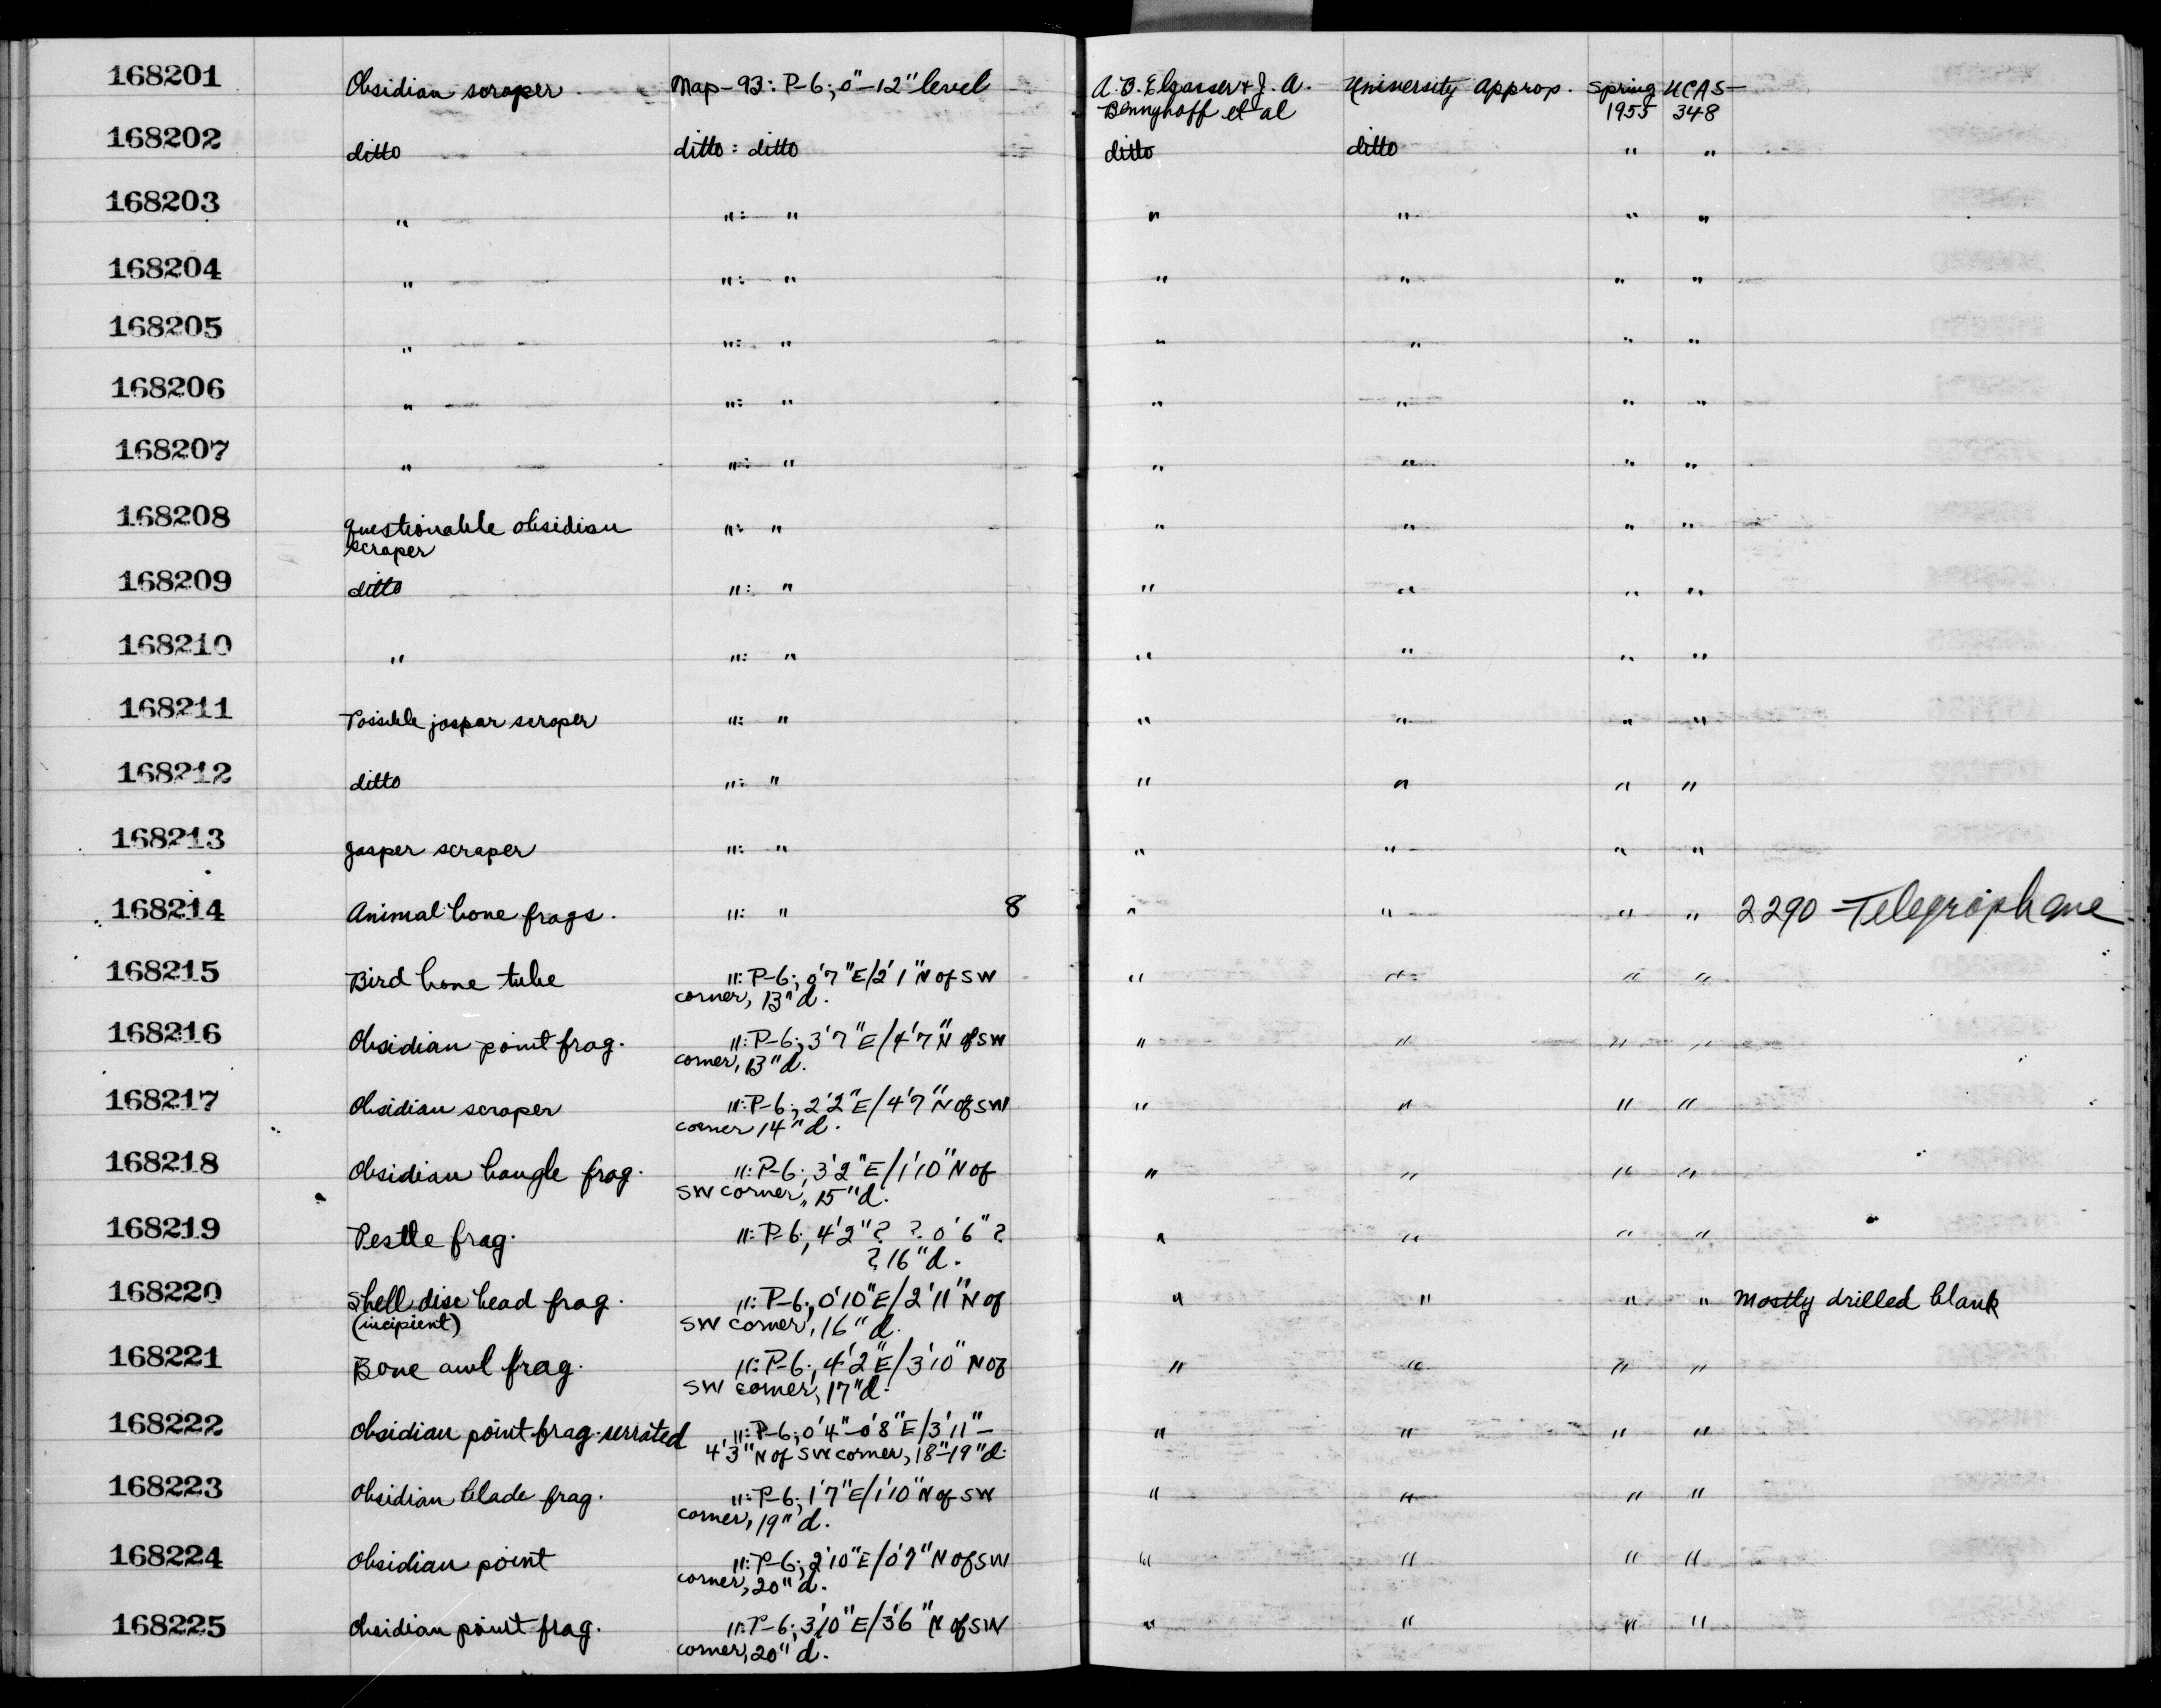 168201 Obsidian scraper Map-93: P-6; 0"-12" level A.B. Elsasser & J. A. University Approp. Spring UCAS-
Bennyhoff et al 1955 348
168202 ditto ditto: ditto ditto ditto " "
168203 " ": " " " " "
168204 " ": " " " " "
168205 " ": " " " " "
168206 " ": " " " " "
168207 " ": " " " " "
168208 questionable obsidian ": " " " " "
scraper
168209 ditto ": " " " " "
168210 " ": " " " " "
168211 Possible jaspar scraper ": " " " " "
168212 ditto ": " " " " "
168213 Jasper scraper ": " " " " "
168214 Animal bone frags. ": " 8 " " " " 2290-Telegraph Ave
168215 Bird bone tube ": P-6; 0'7"E/2'1"N of SW " " " "
corner, 13"d.
168216 Obsidian point frag. ": P-6; 3'7"E/4'7"N of SW " " " "
corner, 13"d.
168217 Obsidian scraper ": P-6; 2'2"E/4'7"N of SW " " " "
corner 14"d.
168218 Obsidian bangle frag. ": P-6; 3'2"E/1'10"N of " " " "
SW corner, 15"d.
168219 Pestle frag. ": P-6; 4'2"? ? 0'6"? " " " "
? 16"d.
168220 Shell disc bead frag. ": P-6; 0'10"E/2'11"N of " " " " Mostly drilled blank
(incipient) SW corner, 16"d.
168221 Bone awl frag. ": P-6; 4'2"E/3'10"N of " " " "
SW corner, 17"d.
168222 Obsidian point frag. serrated ": P-6; 0'4"-0'8"E/3'11"- " " " "
4'3"N of SW corner, 18"-19"d.
168223 Obsidian blade frag. ": P-6; 1'7"E/1'10"N of SW " " " "
corner, 19"d.
168224 Obsidian point ": P-6; 2'10"E/0'7"N of SW " " " "
corner, 20"d.
168225 Obsidian point frag. ": P-6; 3'10"E/3'6"N of SW " " " "
corner, 20"d.